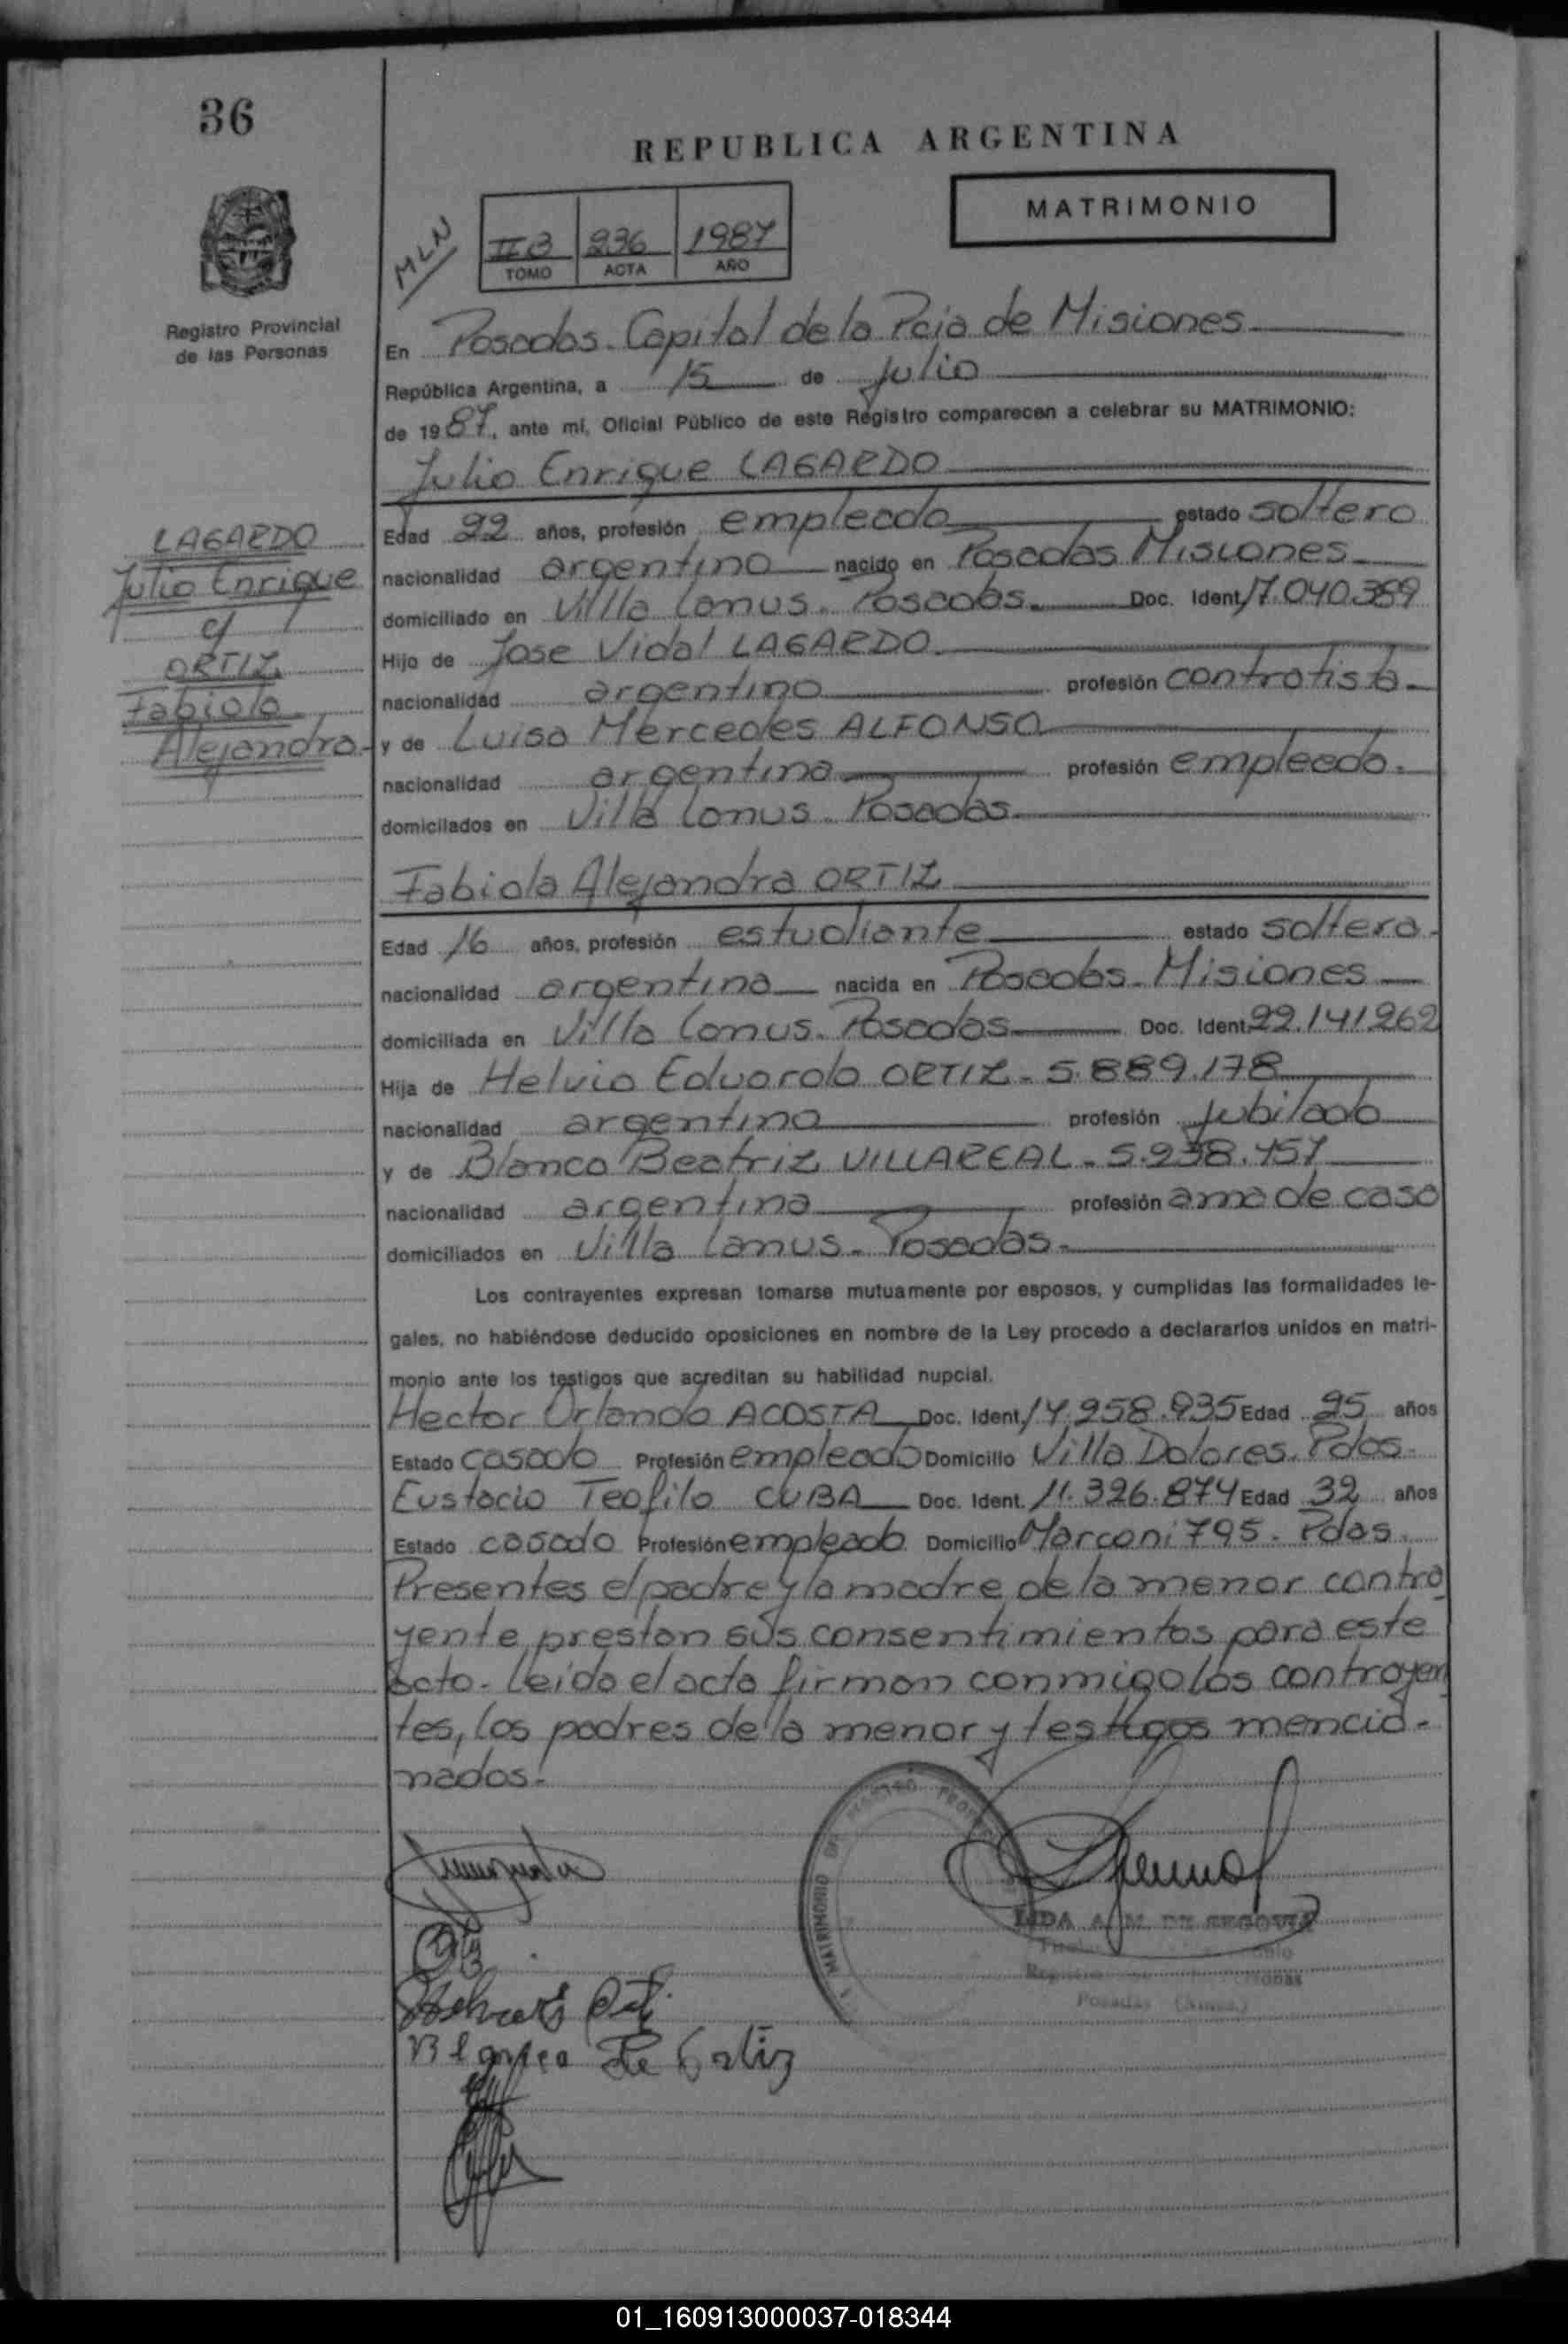 36
REPUBLICA ARGENTINA
MATRIMONIO
MLN
II B 236 1987
TOMO ACTA AÑO
Registro Provincial
de las Personas
En Posadas. Capital de la Pcia de Misiones
República Argentina, a 15 de Julio
de 1987, ante mí, Oficial Público de este Registro comparecen a celebrar su MATRIMONIO:
Julio Enrique LAGARDO
LAGARDO
Julio Enrique
c/
ORTIZ
Fabiola
Alejandra-
Edad 22 años, profesión empleado estado soltero
nacionalidad argentino nacido en Posadas Misiones
domiciliado en Villa Lanus. Posadas. Doc. Ident. 17.040.389
Hijo de Jose Vidal LAGARDO
nacionalidad argentino profesión contratista
y de Luisa Mercedes ALFONSO
nacionalidad argentina profesión empleada.
domiciliados en Villa Lanus. Posadas.
Fabiola Alejandra ORTIZ
Edad 16 años, profesión estudiante estado soltera.
nacionalidad argentina nacida en Posadas. Misiones
domiciliada en Villa Lanus. Posadas Doc. Ident. 22.141262
Hija de Helvio Eduardo ORTIZ - 5.889.178
nacionalidad argentino profesión jubilado
y de Blanca Beatriz VILLAREAL - 5.938.457
nacionalidad argentina profesión ama de casa
domiciliados en Villa Lanus. Posadas.
Los contrayentes expresan tomarse mutuamente por esposos, y cumplidas las formalidades le-
gales, no habiéndose deducido oposiciones en nombre de la Ley procedo a declararlos unidos en matri-
monio ante los testigos que acreditan su habilidad nupcial.
Hector Orlando ACOSTA Doc. Ident. 14.258.935 Edad 25 años
Estado casado Profesión empleado Domicilio Villa Dolores. Pdas.
Eustacio Teofilo CUBA Doc. Ident. 11.326.874 Edad 32 años
Estado casado Profesión empleado Domicilio Marconi 795. Pdas.
Presentes el padre y la madre de la menor contra
yente prestan sus consentimientos para este
acto. Leido el acta firman conmigo los contrayen
tes, los padres de la menor y testigos mencio-
nados.
MATRIMONIO
LIDA A. M. DE SEGOVIA
Posadas
Blanca de Ortiz
01_160913000037-018344